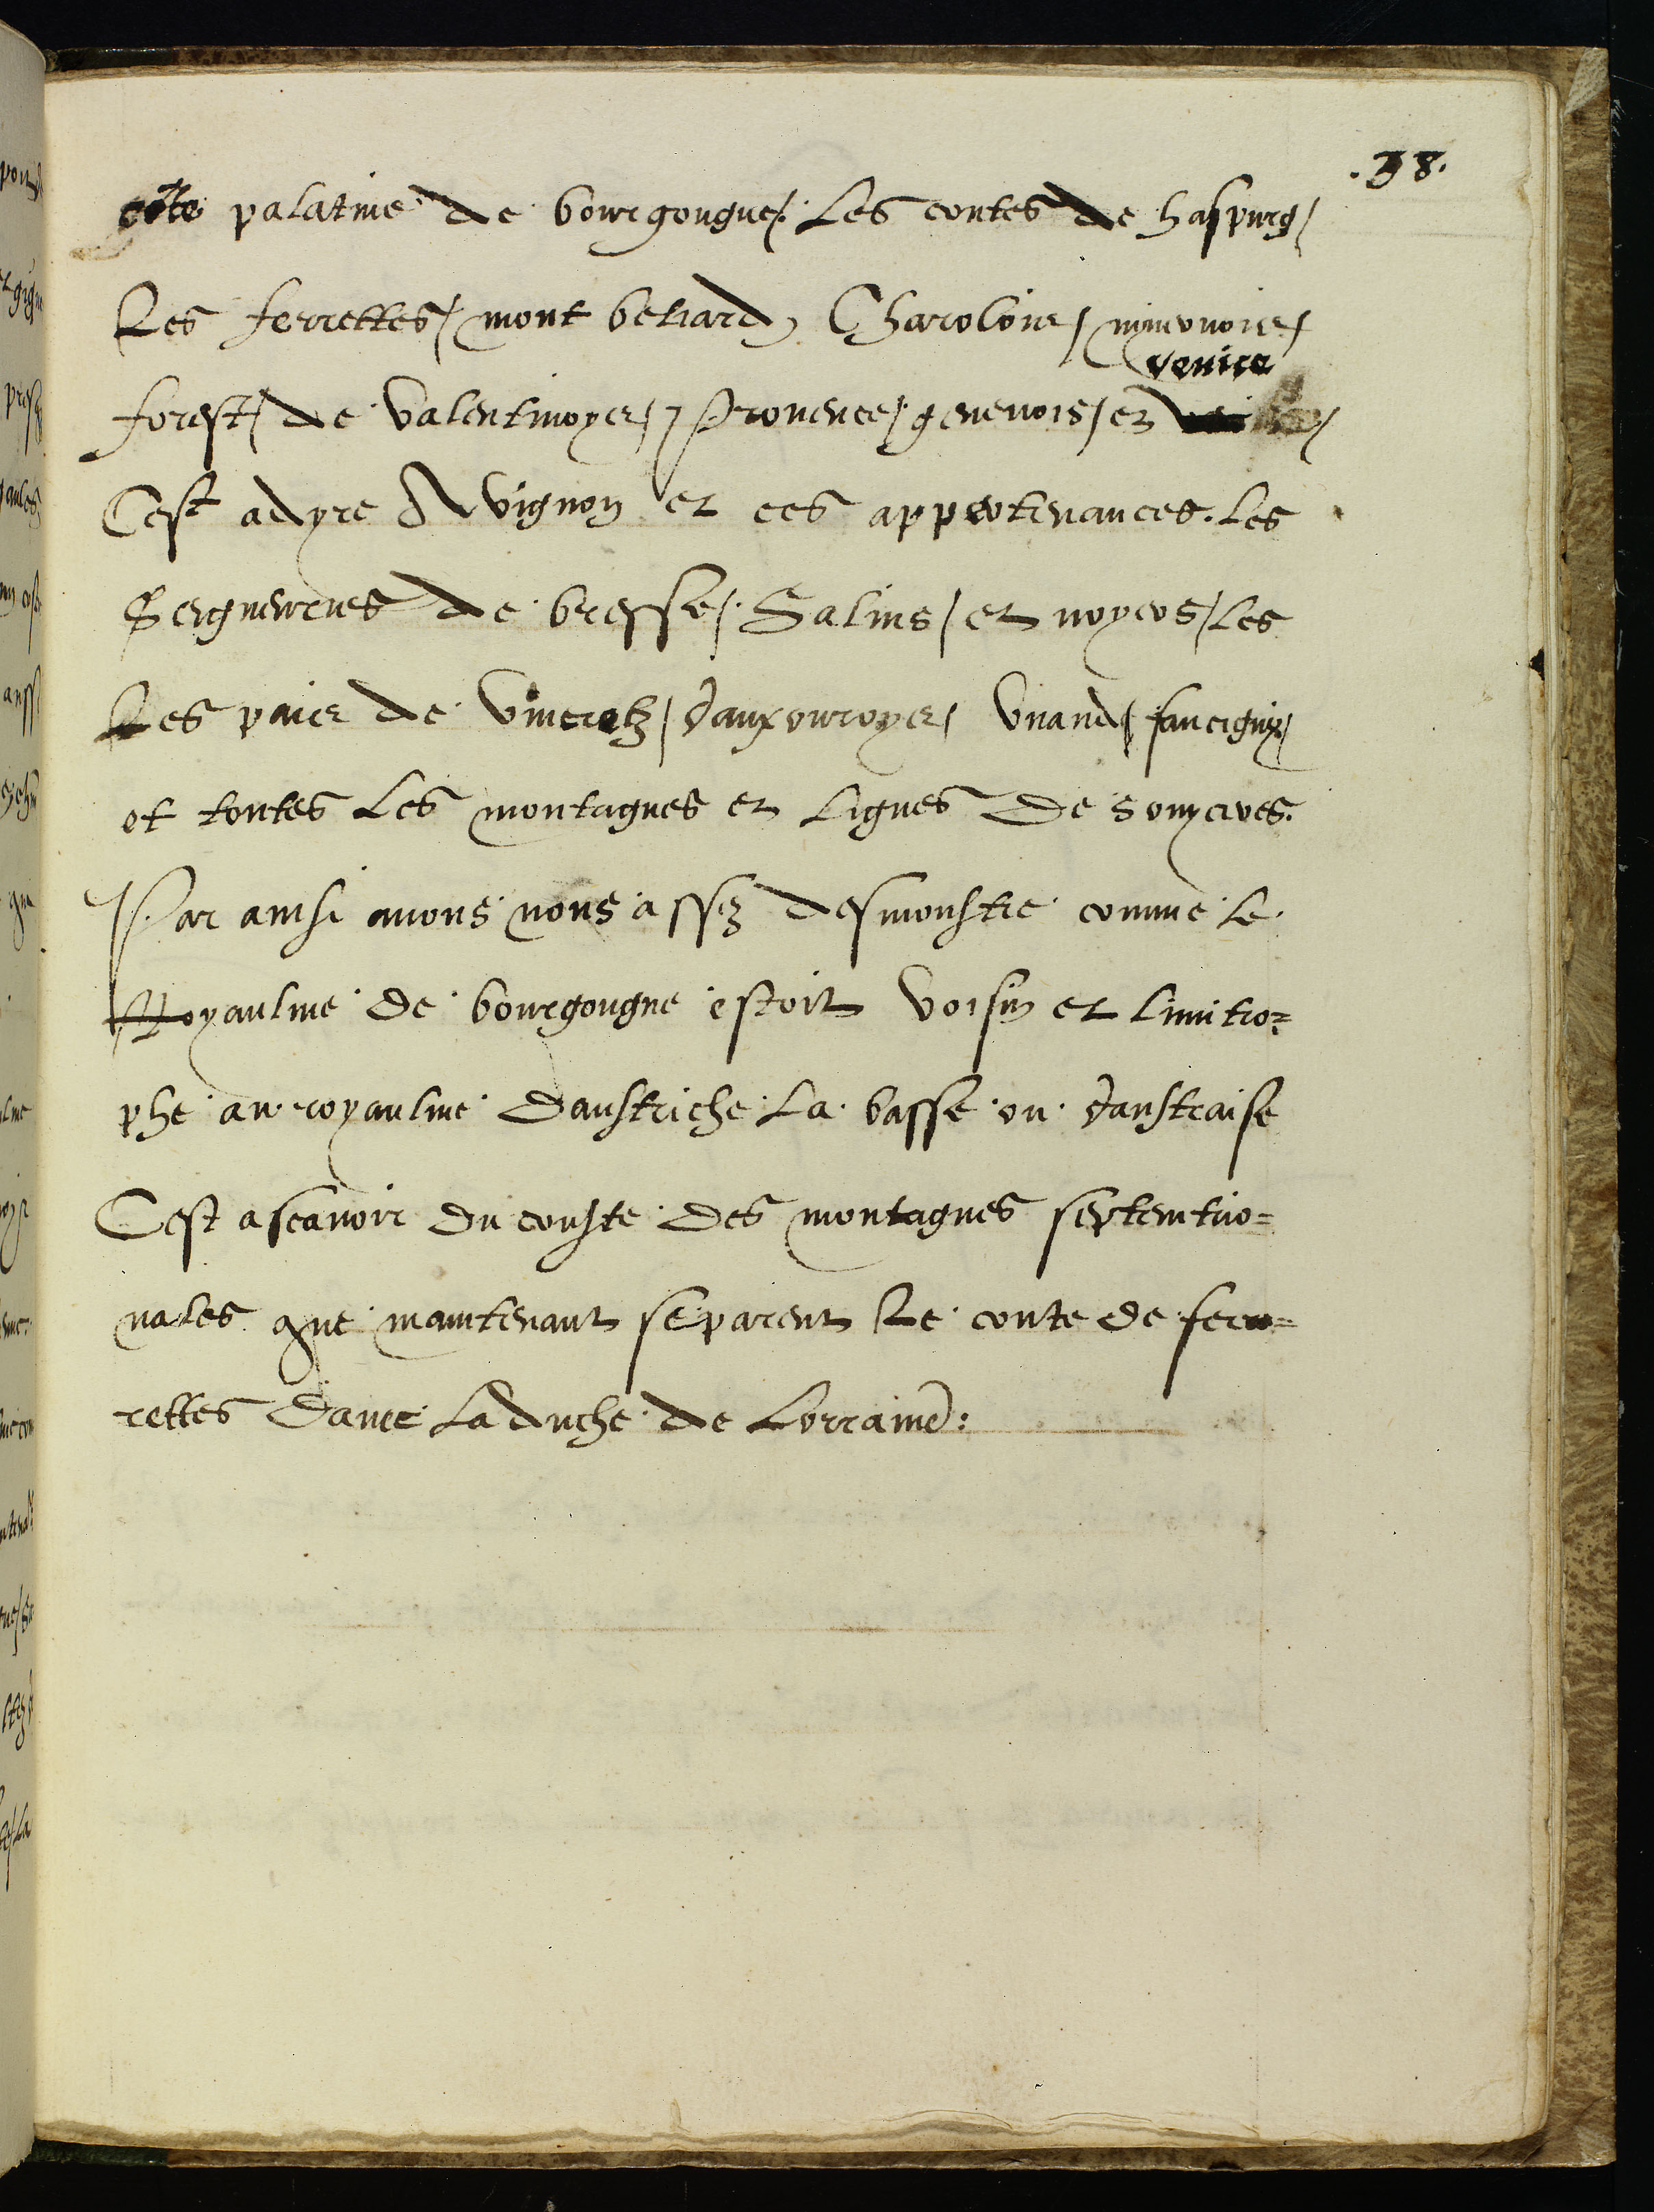 .38.
cote palatine de bourgougne/. Les contes de haspurg/
Les ferrettes/ mont beliard, Charolois/ nyvernois/
venice
forest/ de Valentinoyes/ Provence/ genevois/ et
Cest adyre Avignon et ces appertenances. Les
Seigneuries de bresse/. Salins/ et noyers/ Les
Les pais de Viveretz/ d'auxouroyes/ Vnaud/ faucigny/
et toutes Les montagnes et Ligues de souyeres.
Par ainsi auons nous assez desmonstre comme le
Royaulme de bourgougne estoit Voisin et Limitro=
phe au royaulme Daustriche La basse ou daustraise
Cest ascauoir du couste des montagnes septentrio=
nales que maintenant separent Le conte de fer=
rettes Dauec La duche de Lorraine: